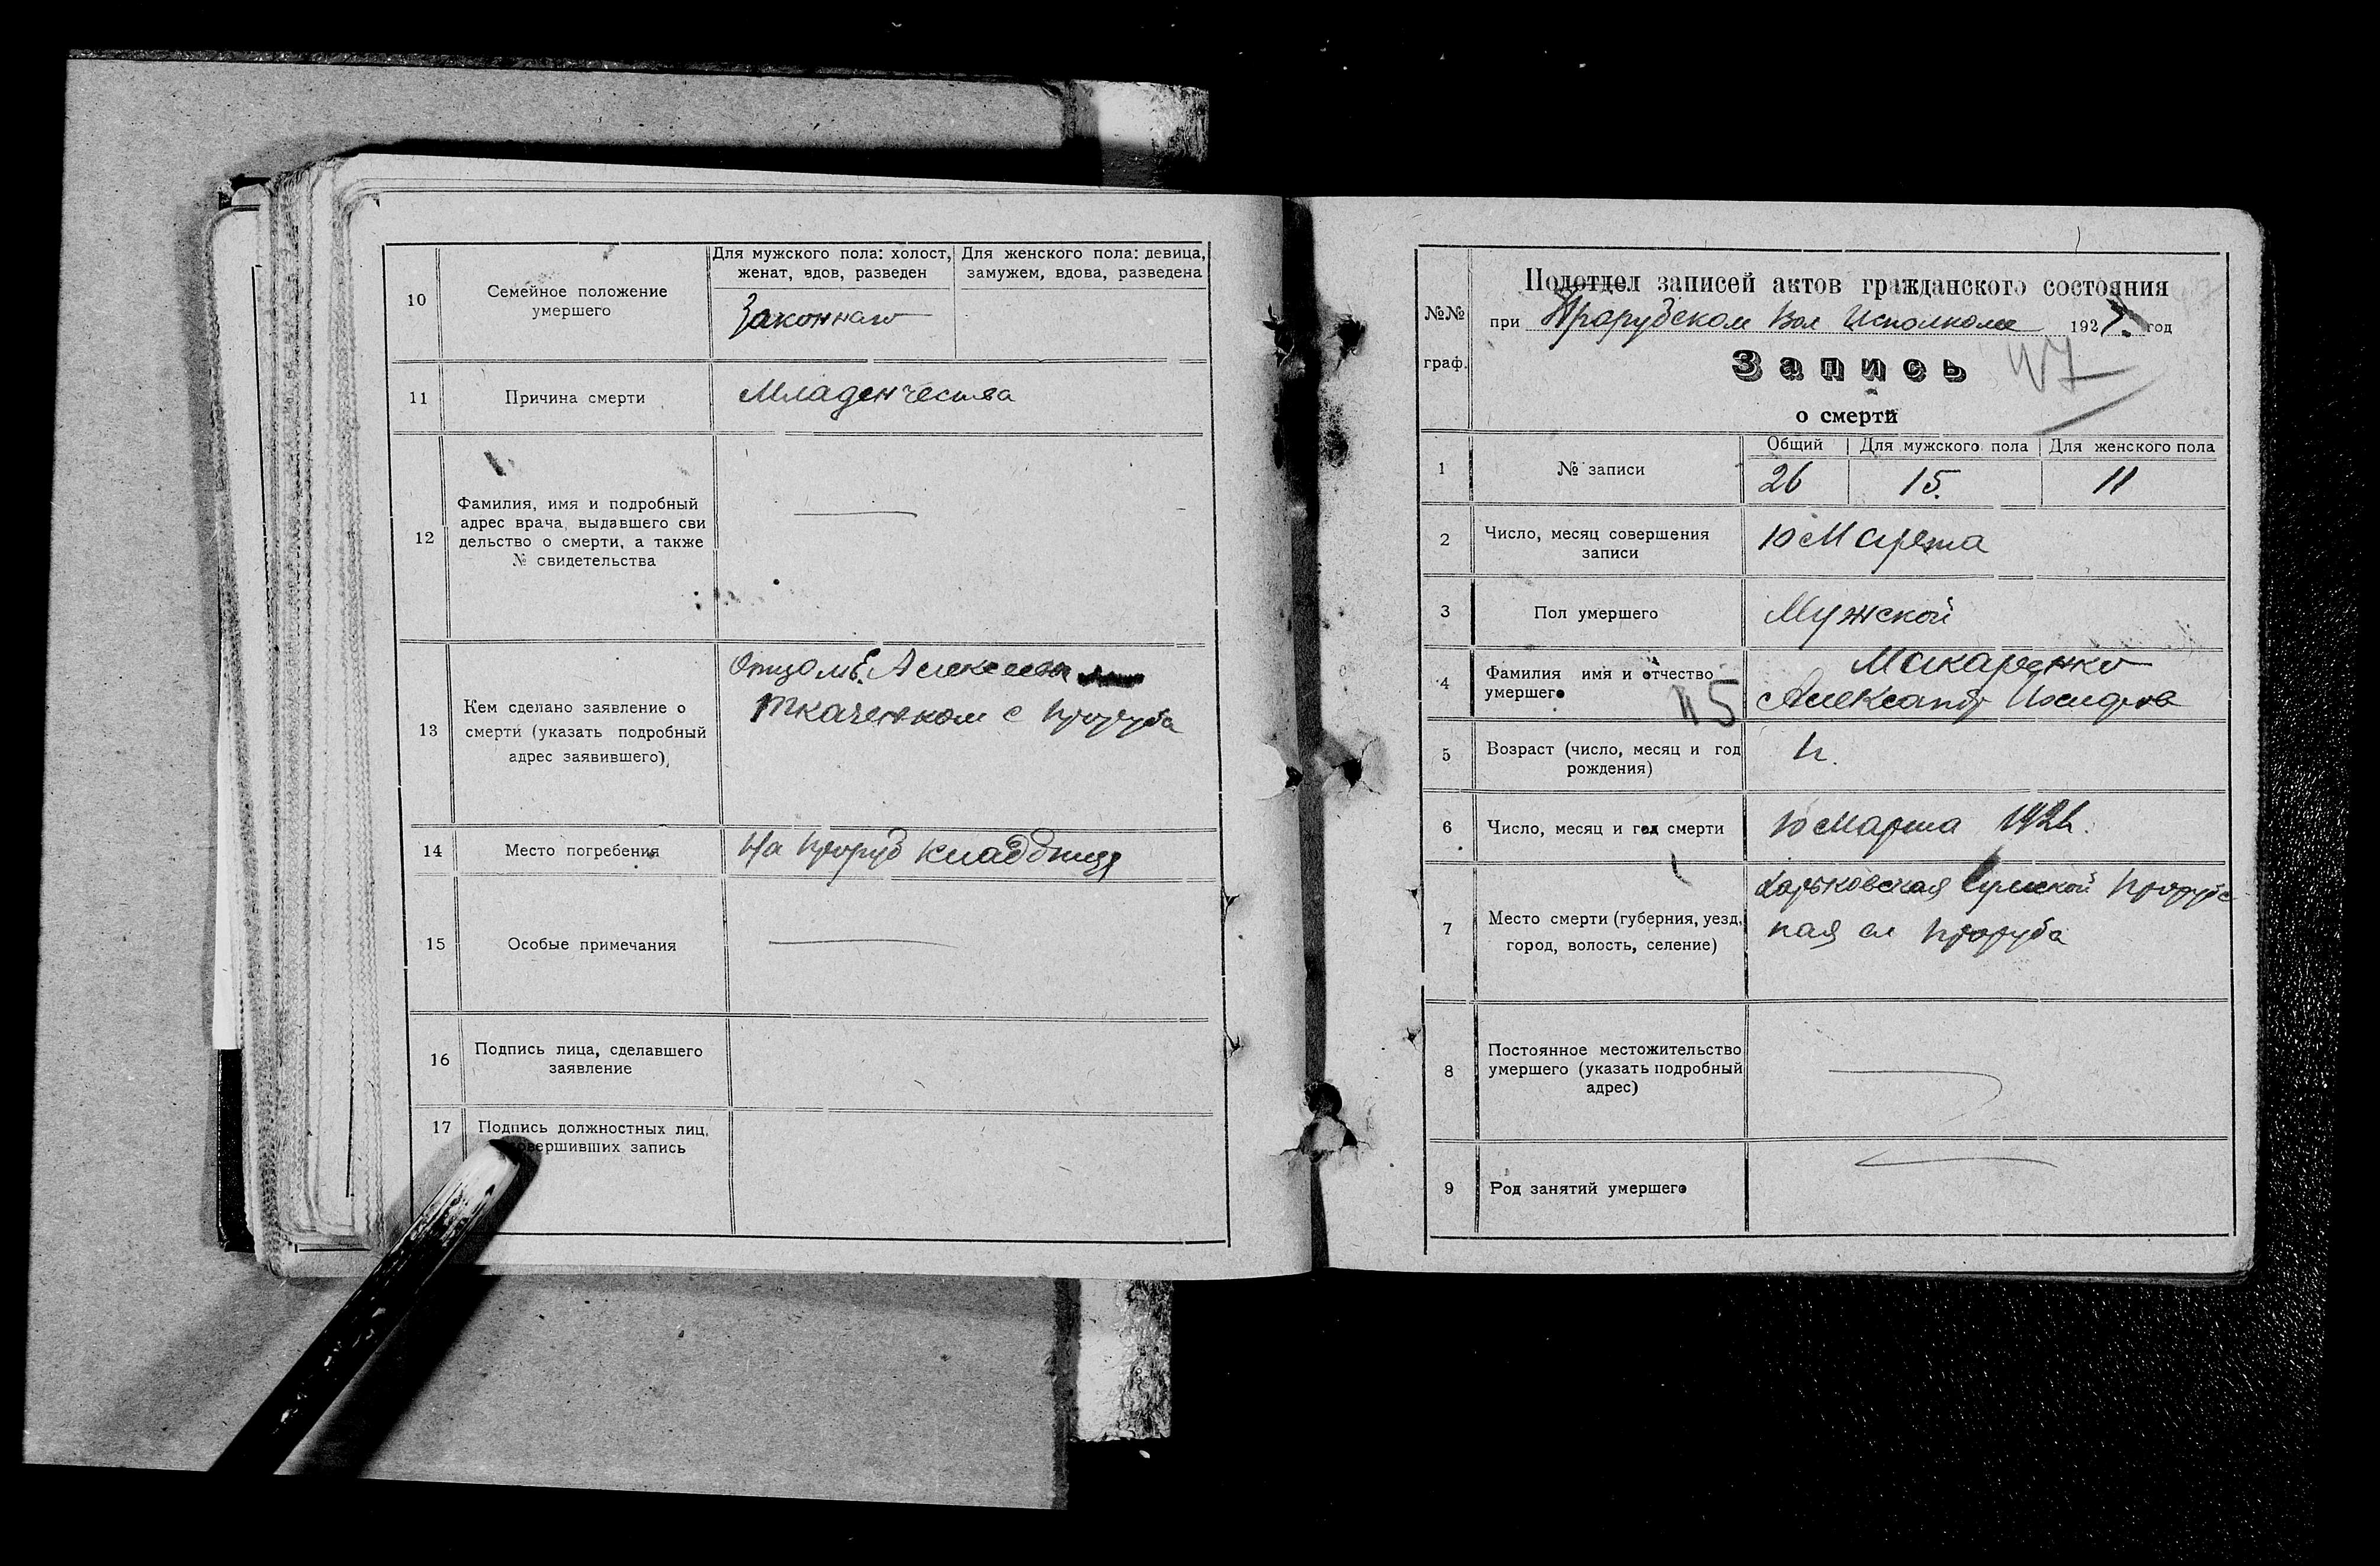 10
Семейное положение
умершего
Для мужского пола: холост,
женат, вдов, разведен
Для женского пола: девица,
замужем, вдова, разведена
Законнаго
11
Причина смерти
Младенчества
12
Фамилия, имя и подробный
адрес врача, выдавшего сви
дельство о смерти, а также
№ свидетельства
13
Кем сделано заявление о
смерти (указать подробный
адрес заявившего),
Отцомъ. Алексеем
Ткаченком с Проруба
14
Место погребения
На Проруб кладбище
15
Особые примечания
16
Подпись лица, сделавшего
заявление
17
Подпись должностных лиц,
совершивших запись
№№
граф.
Подотдел записей актов гражданского состояния
при Прорубском Вол Исполкоме 192 год
Запись
47
о смерти
1
№ записи
Общий
Для мужского пола
Для женского пола
26
15.
11
2
Число, месяц совершения
записи
10 Марта
3
Пол умершего
Мужской
4
Фамилия имя и отчество
умершего
45
Макаренко
Александр
5
Возраст (число, месяц и год
рождения)
6
Число, месяц и год смерти
10 Марта
7
Место смерти (губерния, уезд,
город, волость, селение)
Харьковская Сумской Прорубс
кая сл Проруба
8
Постоянное местожительство
умершего (указать подробный
адрес)
9
Род занятий умершего